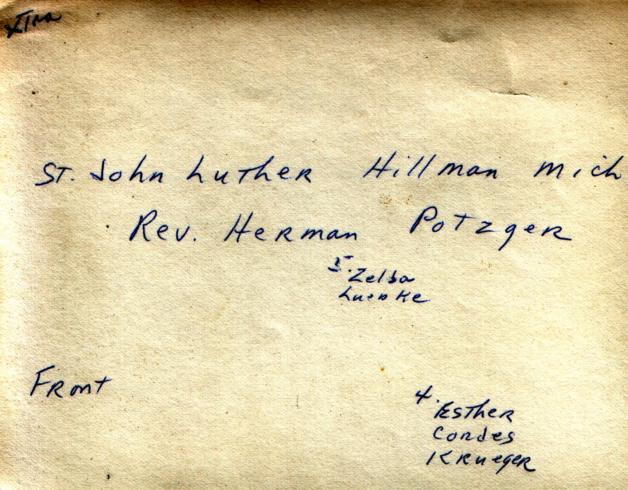 xtra
St. John Luther Hillman Mich
Rev. Herman Potzger
Zelba
Luepke
Front
4.
Esther
Cordes
Krueger